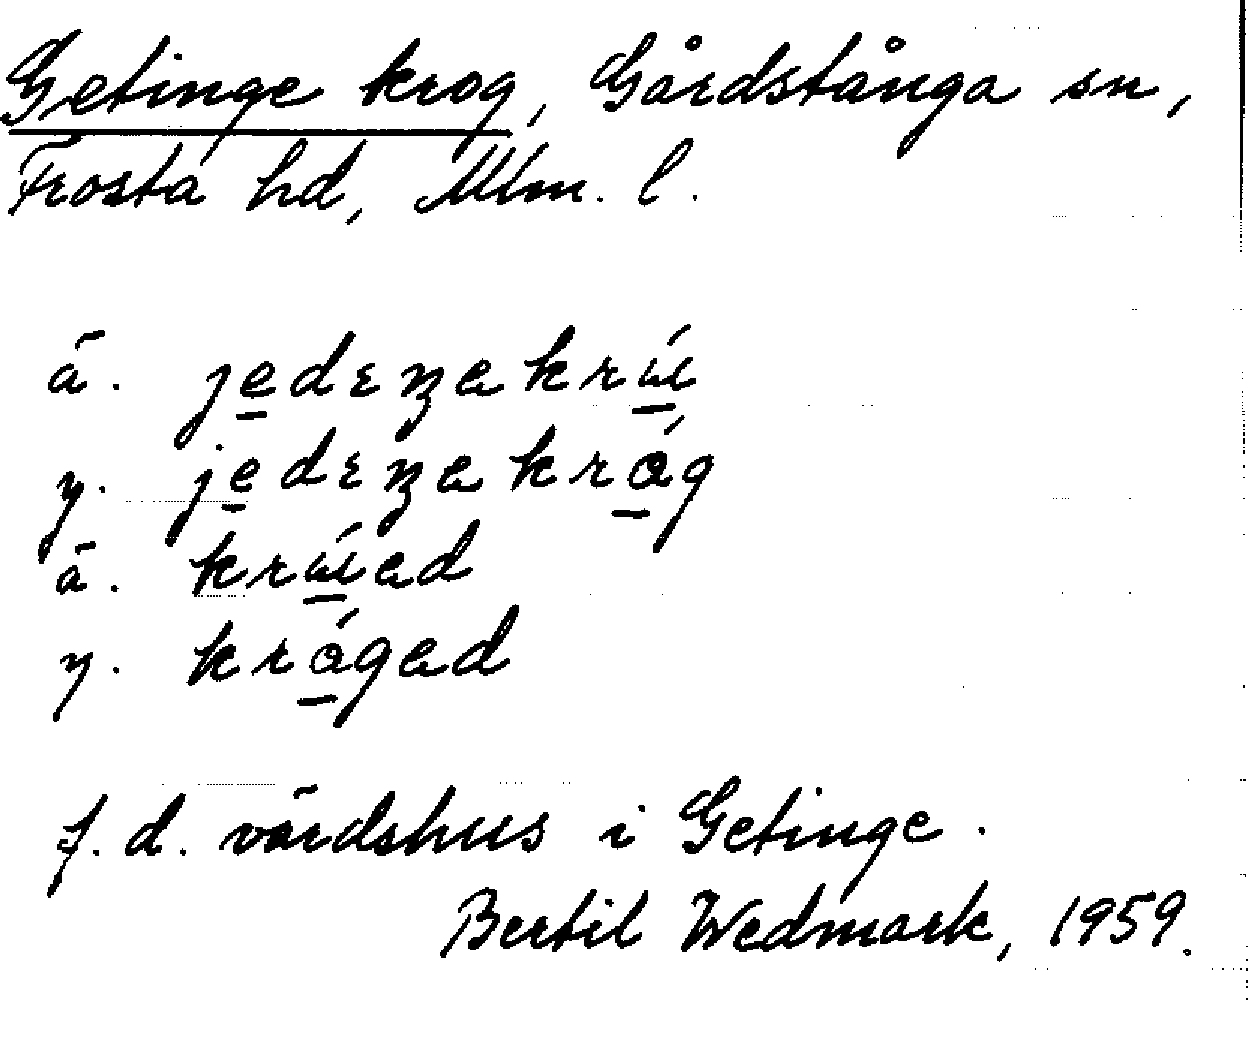 Getinge krog, Gårdstånga sn,
Frosta hd, Mlm. l.
ä. jedεŋakrɯ́
y. jedεŋakróg
ä. krɯ́ad
y. krógad
f. d. värdshus i Getinge.
Bertil Wedmark, 1959.